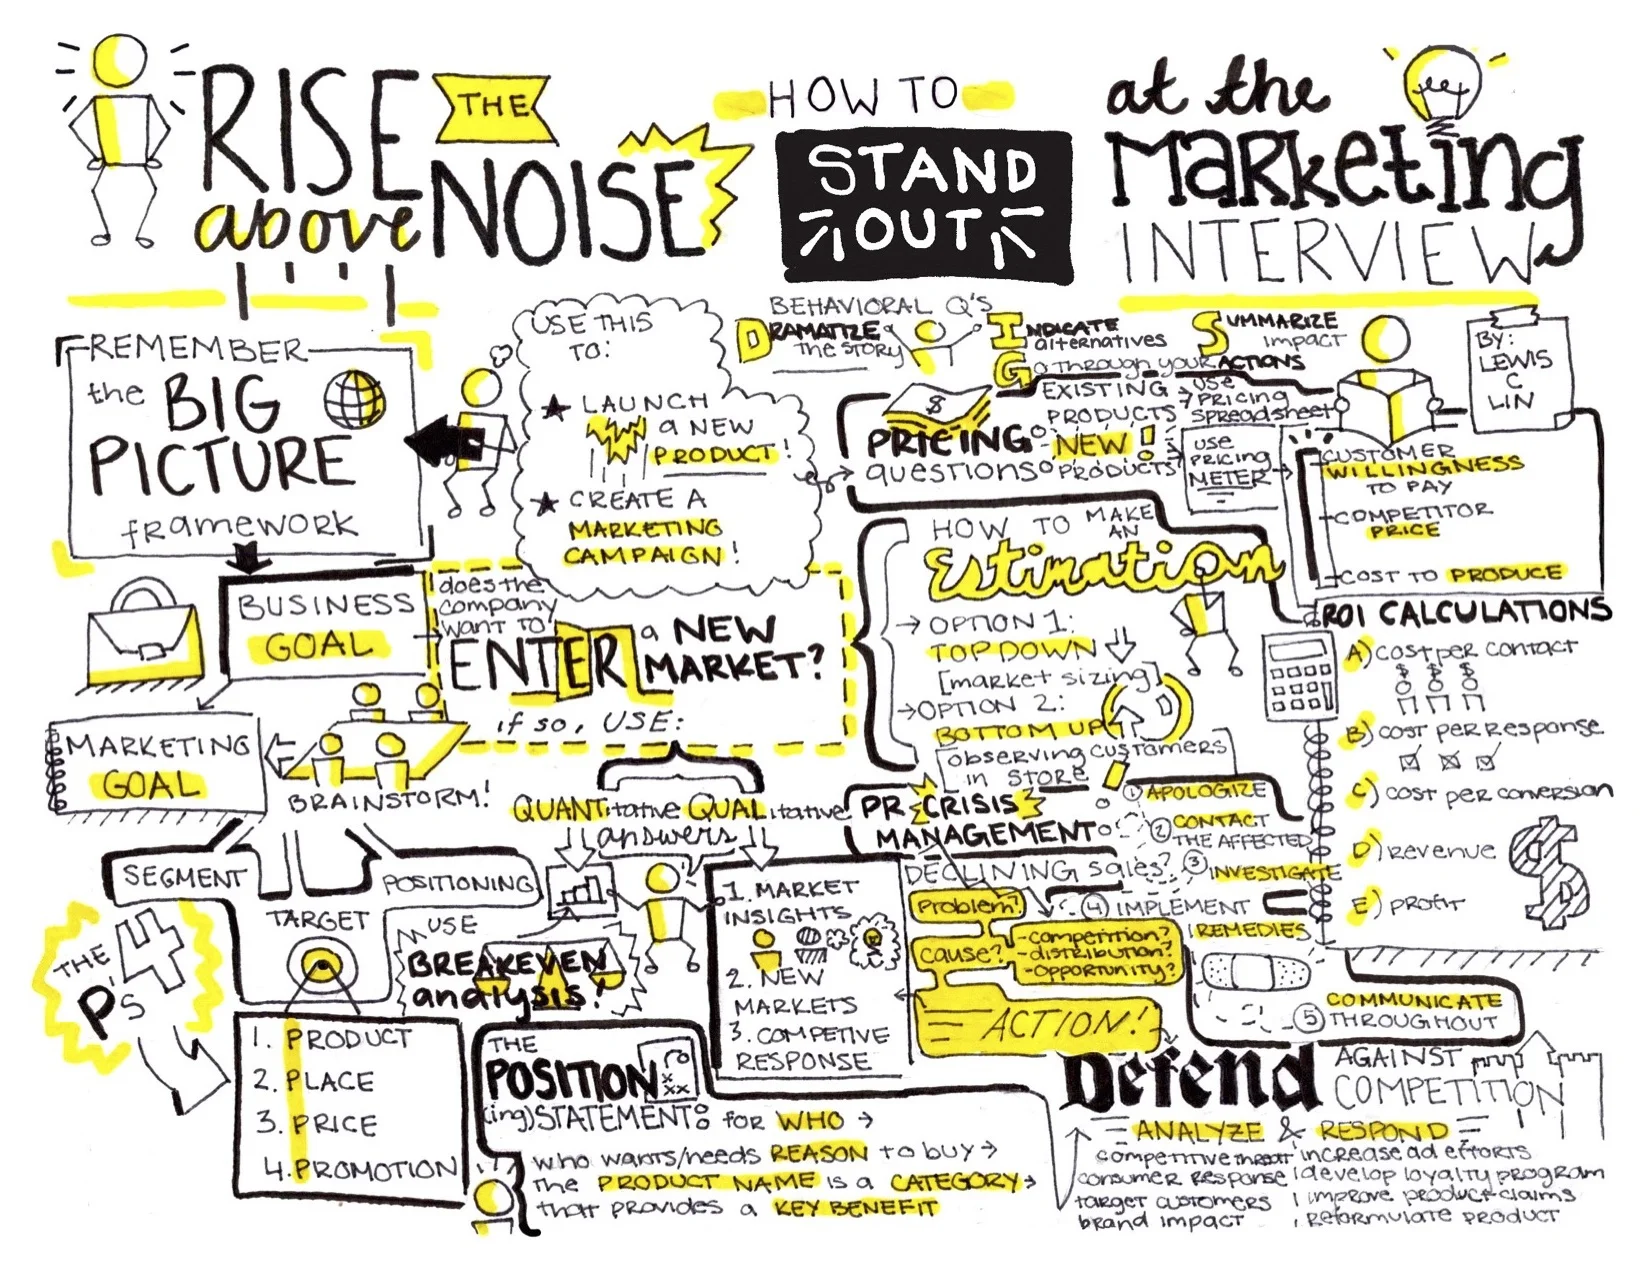 RISE
THE
above
NOISE
HOW TO
STAND
OUT
at the
MARKETING
INTERVIEW
By:
LEWIS
C
LIN
REMEMBER
the BIG
PICTURE
framework
USE THIS
TO:
LAUNCH
a NEW
PRODUCT!
CREATE A
MARKETING
CAMPAIGN!
BUSINESS
GOAL
does the
company
WANT TO
ENTER a NEW
MARKET?
if so, USE:
MARKETING
GOAL
BRAINSTORM!
SEGMENT
TARGET
POSITIONING
THE
4
P's
1. PRODUCT
2. PLACE
3. PRICE
4. PROMOTION
QUANTitative QUALitative
answers
USE
BREAKEVEN
analysis!
1. MARKET
INSIGHTS
2. NEW
MARKETS
3. COMPETIVE
RESPONSE
THE
POSITION
(ing) STATEMENT: for WHO
who wants/needs REASON to buy
the PRODUCT NAME is a CATEGORY
that provides a KEY BENEFIT
BEHAVIORAL Q'S
DRAMATIZE
the STORY
INDICATE
alternatives
GO through your ACTIONS
SUMMARIZE
impact
PRICING
questions
EXISTING
PRODUCTS
USE
PRICING
spreadsheet
NEW!
PRODUCTS
USE
PRICING
METER
CUSTOMER
WILLINGNESS
TO PAY
COMPETITOR
PRICE
COST TO PRODUCE
HOW TO MAKE
AN
Estimation
OPTION 1:
TOP DOWN
[market sizing]
OPTION 2:
BOTTOM UP
observing customers
in STORE
ROI CALCULATIONS
A) cost per contact
$ $ $
B) cost per response
C) cost per conversion
D) revenue
E) profit
PR CRISIS
MANAGEMENT
1 APOLOGIZE
2 CONTACT
THE AFFECTED
3 INVESTIGATE
4 IMPLEMENT
REMEDIES
5 COMMUNICATE
THROUGHOUT
DECLINING sales?
Problem?
cause?
-competition?
-distribution?
-opportunity?
ACTION!
Defend
AGAINST
COMPETITION
ANALYZE & RESPOND
competitive threat
consumer response
target customers
brand impact
increase ad efforts
develop loyalty program
improve product claims
reformulate product